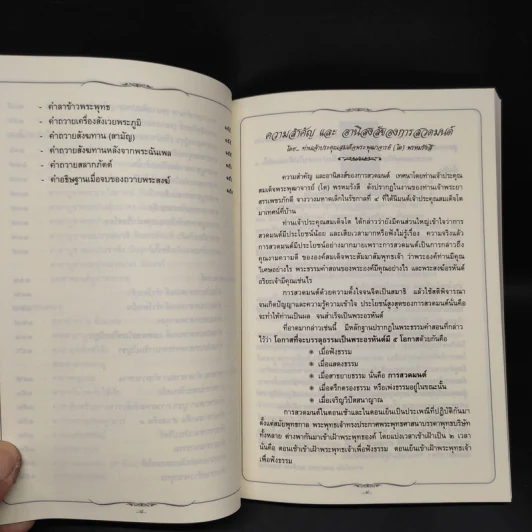 - คำลาข้าวพระพุทธ
- คำถวายเครื่องสังเวยพระภูมิ
- คำถวายสังฆทาน (สามัญ)
- คำถวายสังฆทานหลังจากพระฉันเพล
- คำถวายสลากภัตต์
- คำอธิษฐานเมื่อจบของถวายพระสงฆ์
ความสำคัญ และ อานิสงส์ของการสวดมนต์
โดย... ท่านเจ้าประคุณสมเด็จพระพุฒาจารย์ (โต) พรหมรังสี
ความสำคัญ และอานิสงส์ของการสวดมนต์ เทศนาโดยท่านเจ้าประคุณ
สมเด็จพระพุฒาจารย์ (โต) พรหมรังสี ดังปรากฏในงานของท่านเจ้าพระยา
สรรเพชรภักดี จางวางมหาดเล็กในรัชกาลที่ ๔ ที่ได้นิมนต์เจ้าประคุณสมเด็จโต
มาเทศน์ที่บ้าน
ท่านเจ้าประคุณสมเด็จโต ได้กล่าวว่ายังมีคนส่วนใหญ่เข้าใจว่าการ
สวดมนต์มีประโยชน์น้อย และเสียเวลามากหรือฟังไม่รู้เรื่อง ความจริงแล้ว
การสวดมนต์มีประโยชน์อย่างมากมายเพราะการสวดมนต์เป็นการกล่าวถึง
คุณงามความดี ขององค์สมเด็จพระสัมมาสัมพุทธเจ้า ว่าพระองค์ท่านมีคุณ
วิเศษอย่างไร พระธรรมคำสอนของพระองค์มีคุณอย่างไร และพระสงฆ์อรหันต์
อริยะเจ้ามีคุณเช่นไร
การสวดมนต์ด้วยความตั้งใจจนจิตเป็นสมาธิ แล้วใช้สติพิจารณา
จนเกิดปัญญาและความรู้ความเข้าใจ ประโยชน์สูงสุดของการสวดมนต์นั่นคือ
จะทำให้ท่านเป็นผล จนสำเร็จเป็นพระอรหันต์
ที่อาตมากล่าวเช่นนี้ มีหลักฐานปรากฏในพระธรรมคำสอนที่กล่าว
ไว้ว่า โอกาสที่จะบรรลุธรรมเป็นพระอรหันต์มี ๕ โอกาสด้วยกันคือ
เมื่อฟังธรรม
เมื่อแสดงธรรม
เมื่อสาธยายธรรม นั่นคือ การสวดมนต์
เมื่อตรึกตรองธรรม หรือเพ่งธรรมอยู่ในขณะนั้น
เมื่อเจริญวิปัสสนาญาณ
การสวดมนต์ในตอนเช้าและในตอนเย็นเป็นประเพณีที่ปฏิบัติกันมา
ตั้งแต่สมัยพุทธกาล พระพุทธเจ้าทรงประกาศพระพุทธศาสนาบรรดาพุทธบริษัท
ทั้งหลาย ต่างพากันมาเข้าเฝ้าพระพุทธองค์ โดยแบ่งเวลาเข้าเฝ้าเป็น ๒ เวลา
นั่นคือ ตอนเช้าเข้าเฝ้าพระพุทธเจ้าเพื่อฟังธรรม ตอนเย็นเข้าเฝ้าพระพุทธเจ้า
เพื่อฟังธรรม